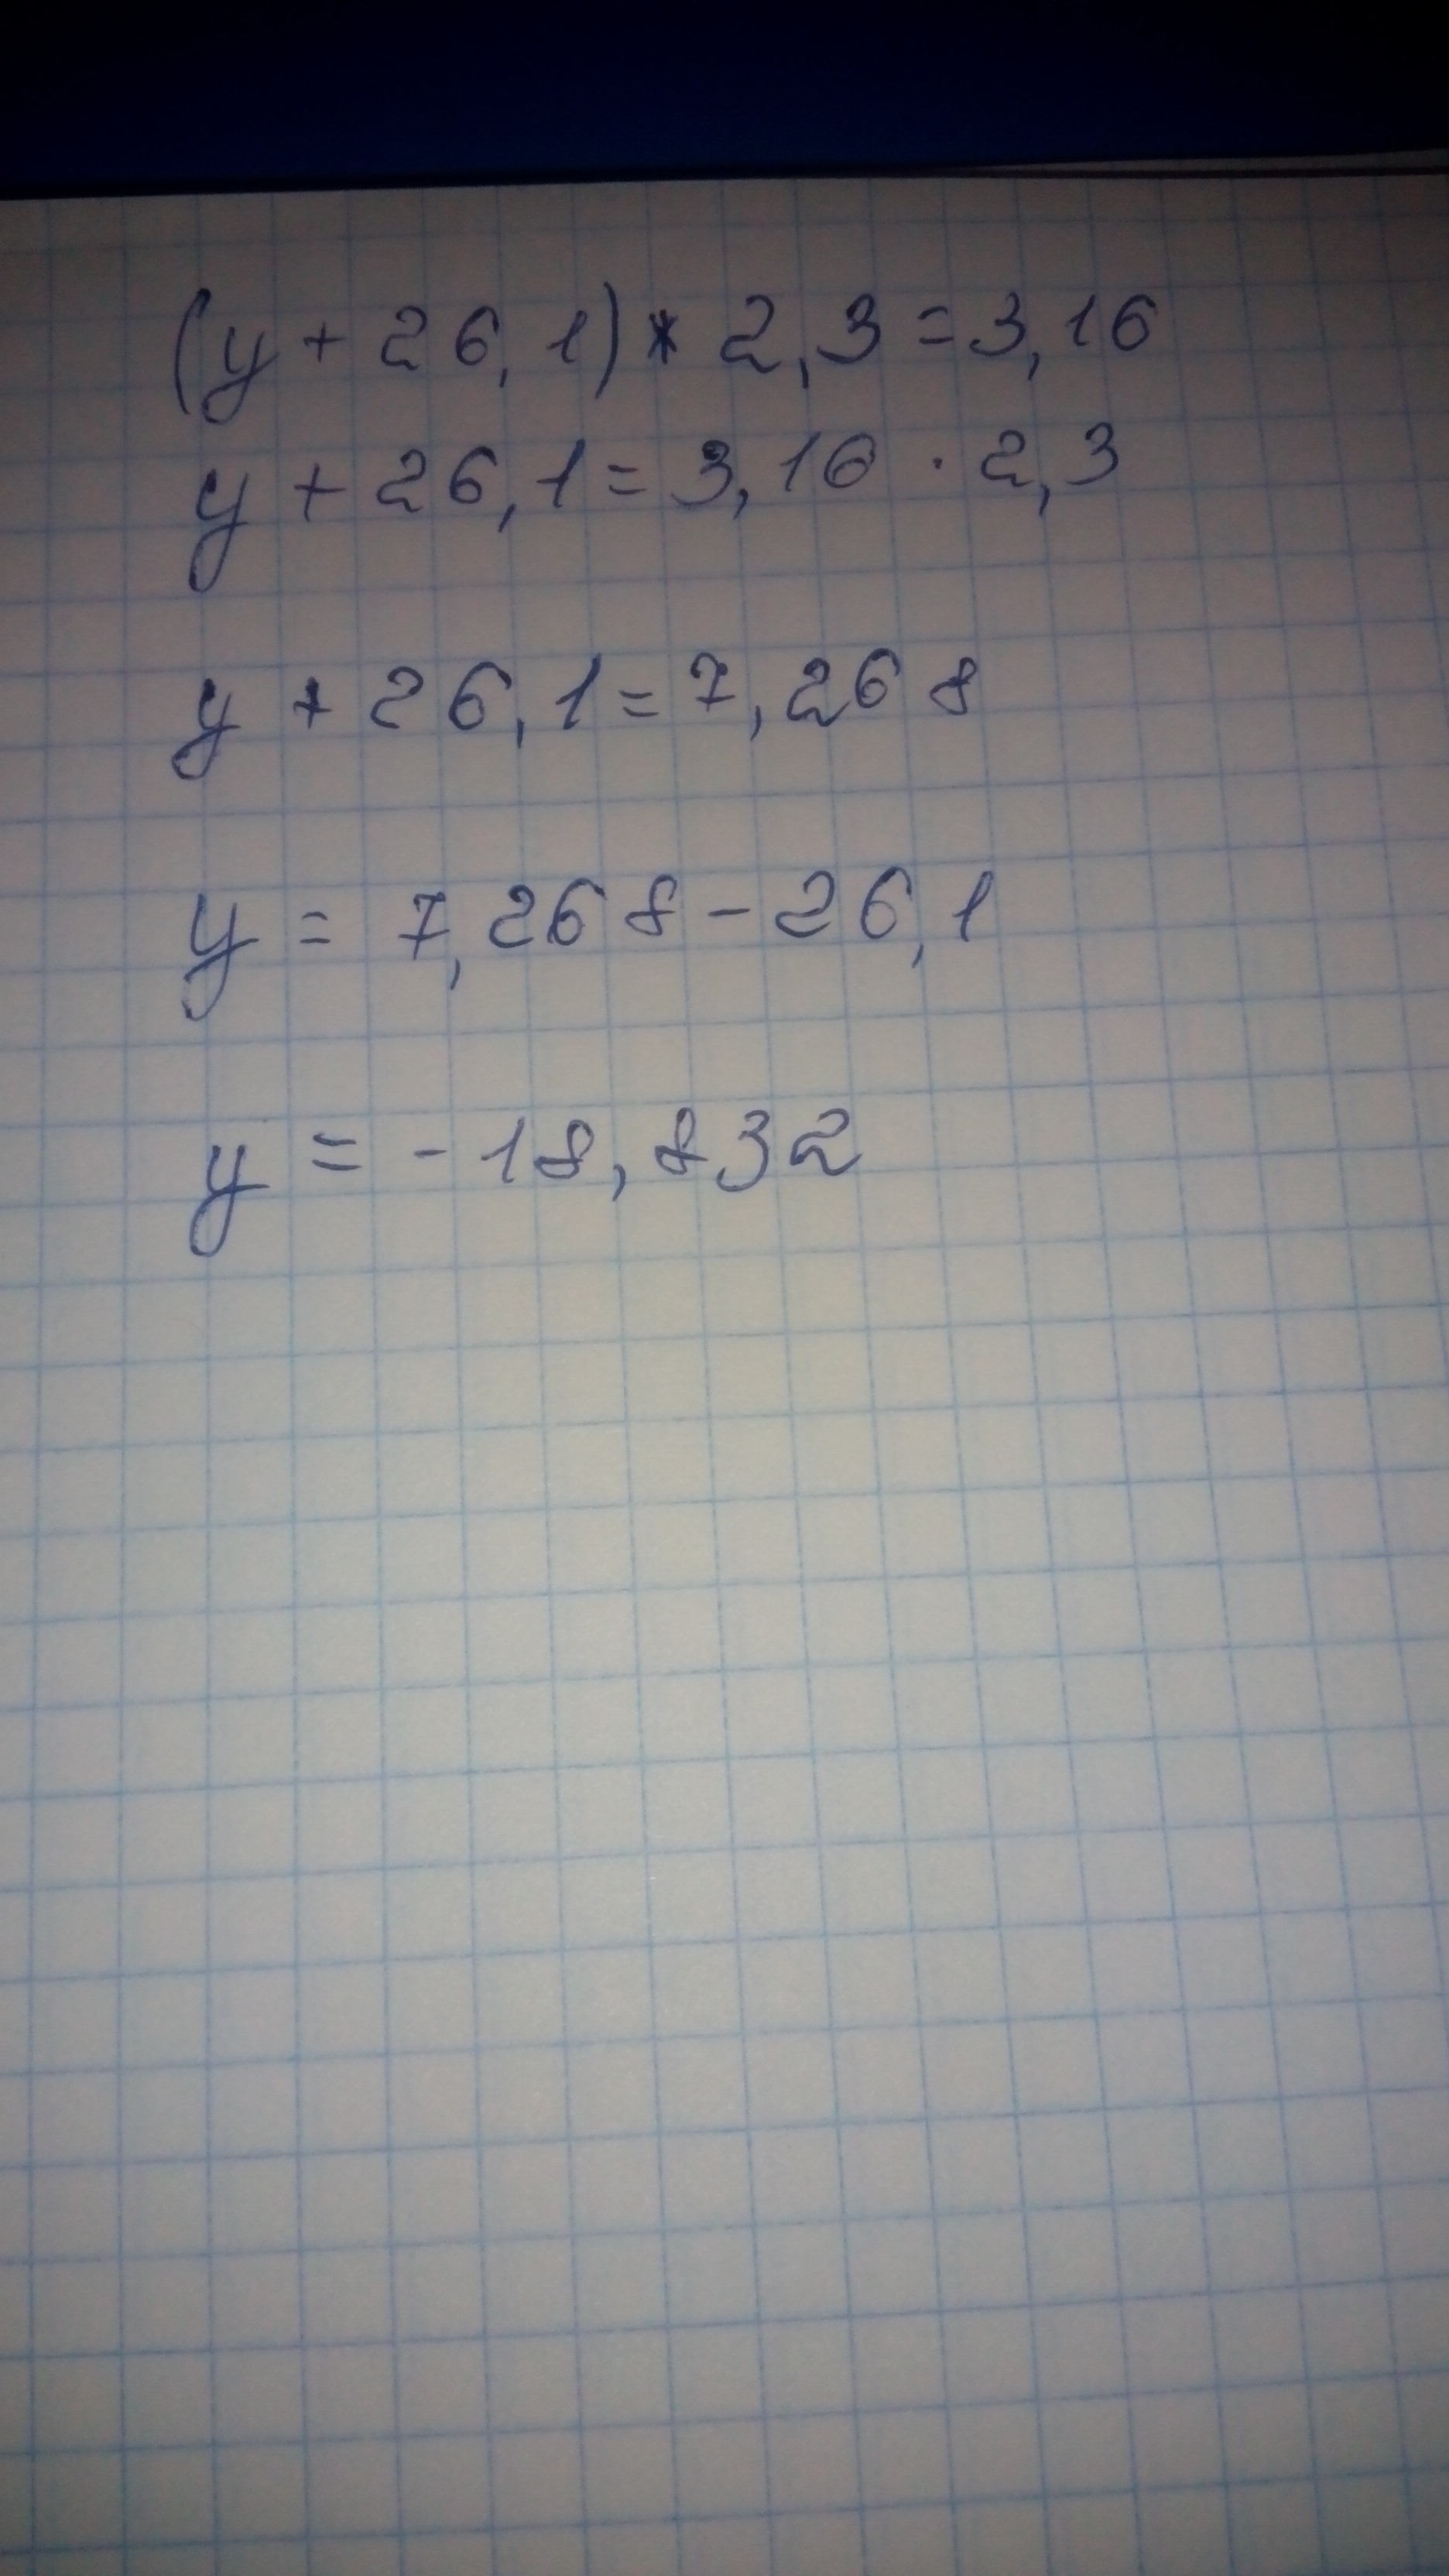 (y + 26,1) * 2,3 = 3,16
y + 26,1 = 3,16 · 2,3
y + 26,1 = 7,268
y = 7,268 - 26,1
y = - 18,832